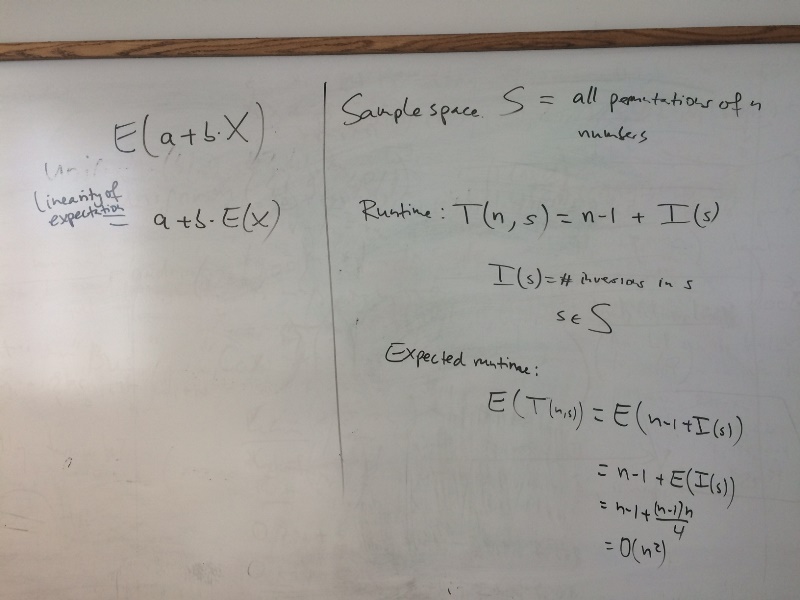 E(a+b·X)
Linearity of
expectation
= a+b·E(X)
Sample space S = all permutations of n
numbers
Runtime: T(n,s) = n-1 + I(s)
I(s) = # inversions in s
s∈S
Expected runtime:
E(T(n,s)) = E(n-1+I(s))
= n-1 + E(I(s))
= n-1 + (n-1)n/4
= O(n²)